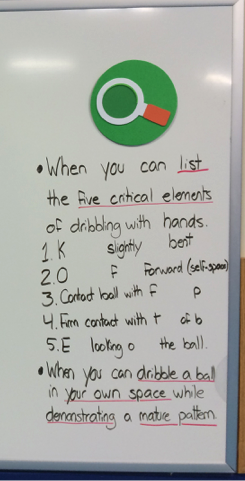 • When you can list
the five critical elements
of dribbling with hands.
1. K slightly bent
2. O F Forward (self-space)
3. Contact ball with F P
4. Firm contact with t of b
5. E looking o the ball.
• When you can dribble a ball
in your own space while
demonstrating a mature pattern.